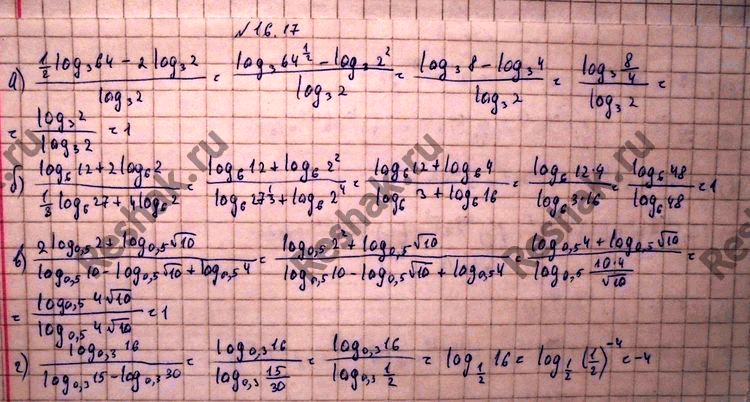 №16.17
а) \frac{\frac{1}{2}log_3 64 - 2log_3 2}{log_3 2} = \frac{log_3 64^{\frac{1}{2}} - log_3 2^2}{log_3 2} = \frac{log_3 8 - log_3 4}{log_3 2} = \frac{log_3 \frac{8}{4}}{log_3 2} =
= \frac{log_3 2}{log_3 2} = 1
б) \frac{log_6 12 + 2log_6 2}{\frac{1}{3}log_6 27 + 4log_6 2} = \frac{log_6 12 + log_6 2^2}{log_6 27^{\frac{1}{3}} + log_6 2^4} = \frac{log_6 12 + log_6 4}{log_6 3 + log_6 16} = \frac{log_6 12·4}{log_6 3·16} = \frac{log_6 48}{log_6 48} = 1
в) \frac{2log_{0,5} 2 + log_{0,5} \sqrt{10}}{log_{0,5} 10 - log_{0,5} \sqrt{10} + log_{0,5} 4} = \frac{log_{0,5} 2^2 + log_{0,5} \sqrt{10}}{log_{0,5} 10 - log_{0,5} \sqrt{10} + log_{0,5} 4} = \frac{log_{0,5} 4 + log_{0,5} \sqrt{10}}{log_{0,5} \frac{10·4}{\sqrt{10}}} =
= \frac{log_{0,5} 4\sqrt{10}}{log_{0,5} 4\sqrt{10}} = 1
г) \frac{log_{0,3} 16}{log_{0,3} 15 - log_{0,3} 30} = \frac{log_{0,3} 16}{log_{0,3} \frac{15}{30}} = \frac{log_{0,3} 16}{log_{0,3} \frac{1}{2}} = log_{\frac{1}{2}} 16 = log_{\frac{1}{2}} (\frac{1}{2})^{-4} = -4
Reshak.ru
Reshak.ru
Reshak.ru